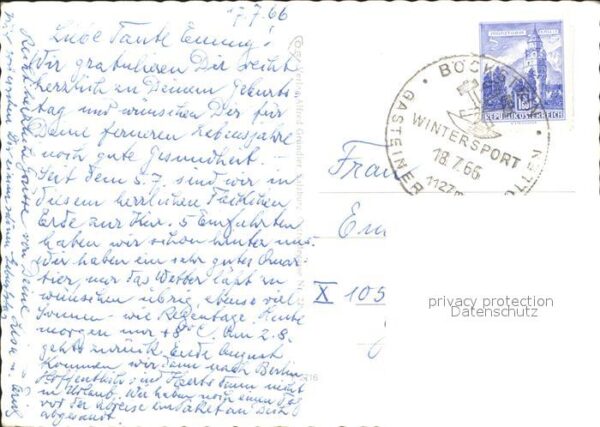 17.7.66
Liebe Tante Emmy!
Wir gratulieren Dir recht
herzlich zu Deinem Geburts
tag und wünschen Dir für
Deine ferneren Lebensjahre
noch gute Gesundheit.
Seit dem 5.7. sind wir in
diesem herrlichen Fleckchen
Erde zur Kur. 5 Einfahrten
haben wir schon hinter uns.
Wir haben ein sehr gutes Quar-
tier, nur das Wetter läßt zu
wünschen übrig, ebenso viel
Sonnen- wie Regentage. Heute
morgen nur +8°C. Am 2.8.
geht's zurück. Ende August
kommen wir dann nach Berlin.
Hoffentlich seid Ihr dann nicht
in Urlaub. Wir haben noch einen Tag
vor der Abreise ein Paket an Dich
abgesandt.
Recht herzliche Grüße von Deine
BÖCKSTEIN
GASTEINER
WINTERSPORT
18.7.66
1127m
REPUBLIK ÖSTERREICH
Frau
X 105
privacy protection
Datenschutz